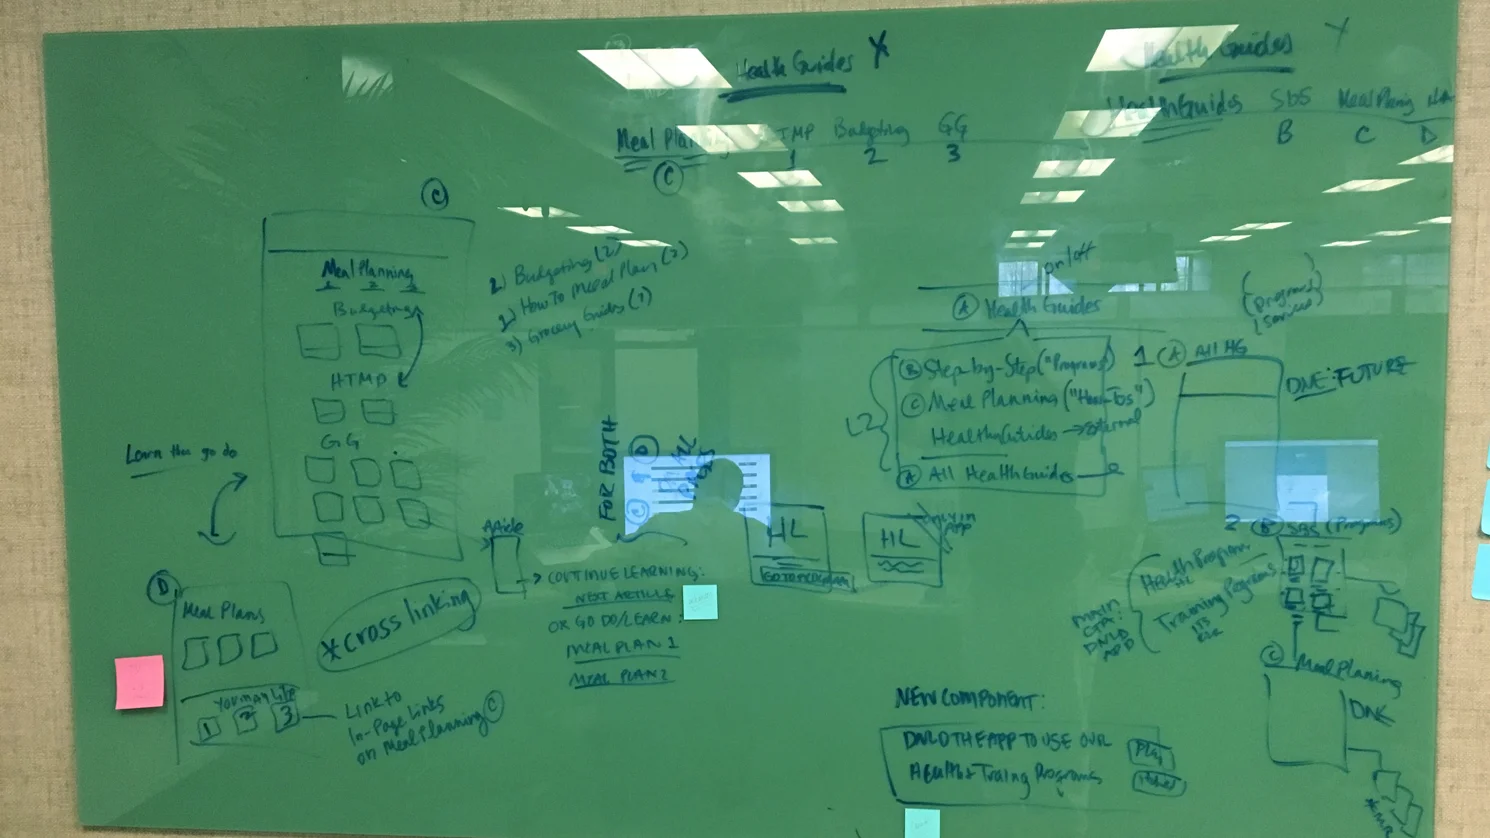 Health Guides X
Health Guides
Meal Plan
HTMP Budgeting GG
1 2 3
C
Health Guides SbS Meal Planning
B C D
C
Meal Planning
1 2 3
Budgeting
HTMP
GG
2) Budgeting (2)
How To Meal Plan (2)
3) Grocery Guides (1)
Learn then go do
D
Meal Plans
You may Like
1 2 3
Link to
In-Page Links
on Meal Planning C
*cross linking
Article
CONTINUE LEARNING:
NEXT ARTICLE
OR GO DO/LEARN:
MEAL PLAN 1
MEAL PLAN 2
FOR BOTH
C & D
HL
PAGES
HL
HL
ONLY IN
APP
on/off
A Health Guides
L2
B Step-by-Step ("Programs")
C Meal Planning ("How-Tos")
Health Guides → External
A All Health Guides
(Programs
Services)
1 A All HG
DNE: FUTURE
2 B SBS (Programs)
Health Program
Training Programs
MAIN
CTA:
DNLD
APP
C Meal Planning
DNE
NEW COMPONENT:
DNLD THE APP TO USE OUR
Health + Traing Programs